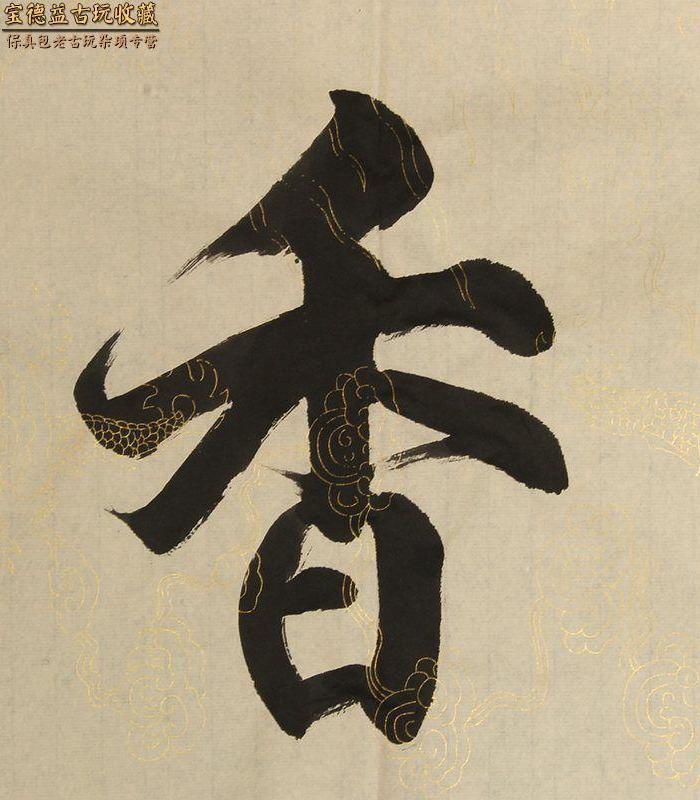 宝德益古玩收藏
保真包老古玩杂项专营
香